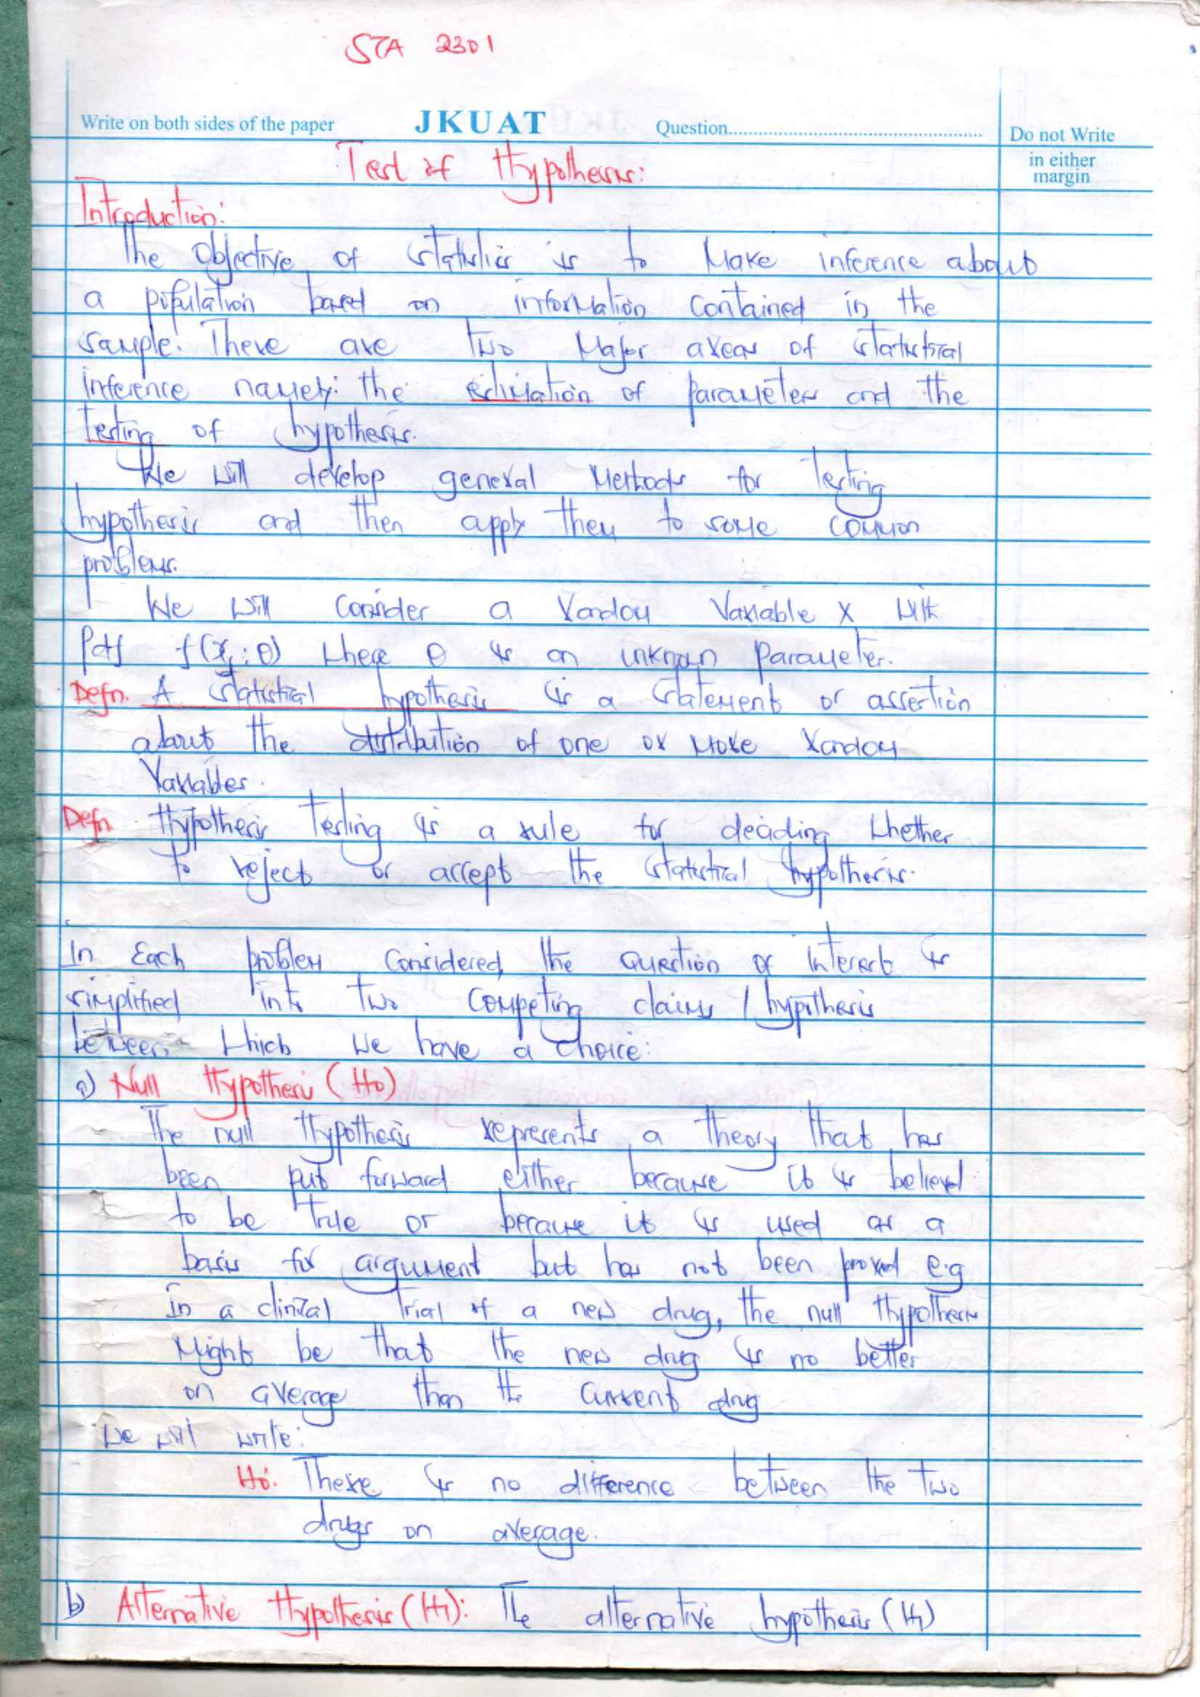 STA 2301
Write on both sides of the paper JKUAT Question........................................ Do not Write
in either
margin
Test of Hypothesis:
Introduction:
The Objective of statistics is to Make inference about
a population based on information contained in the
sample. There are two Major areas of statistical
inference namely: the estimation of parameters and the
testing of hypothesis.
We will develop general Methods for Testing
hypothesis and then apply them to some common
problems.
We will Consider a random Variable X with
Pdf f(x; θ) where θ is an unknown parameter.
Defn. A statistical hypothesis is a statement or assertion
about the distribution of one or more random
Variables.
Defn Hypothesis Testing is a rule for deciding whether
to reject or accept the statistical hypothesis.
In Each problem Considered, the question of interest is
simplified into two competing claims / hypothesis
between which we have a choice:
a) Null Hypothesis (H0)
The null Hypothesis represents a theory that has
been put forward either because it is believed
to be true or because it is used as a
basis for argument but has not been proved e.g
In a clinical Trial of a new drug, the null Hypothesis
Might be that the new drug is no better
on average than the current drug
We will write:
Ho: There is no difference between the two
drugs on average.
b) Alternative Hypothesis (H1): The alternative hypothesis (H1)